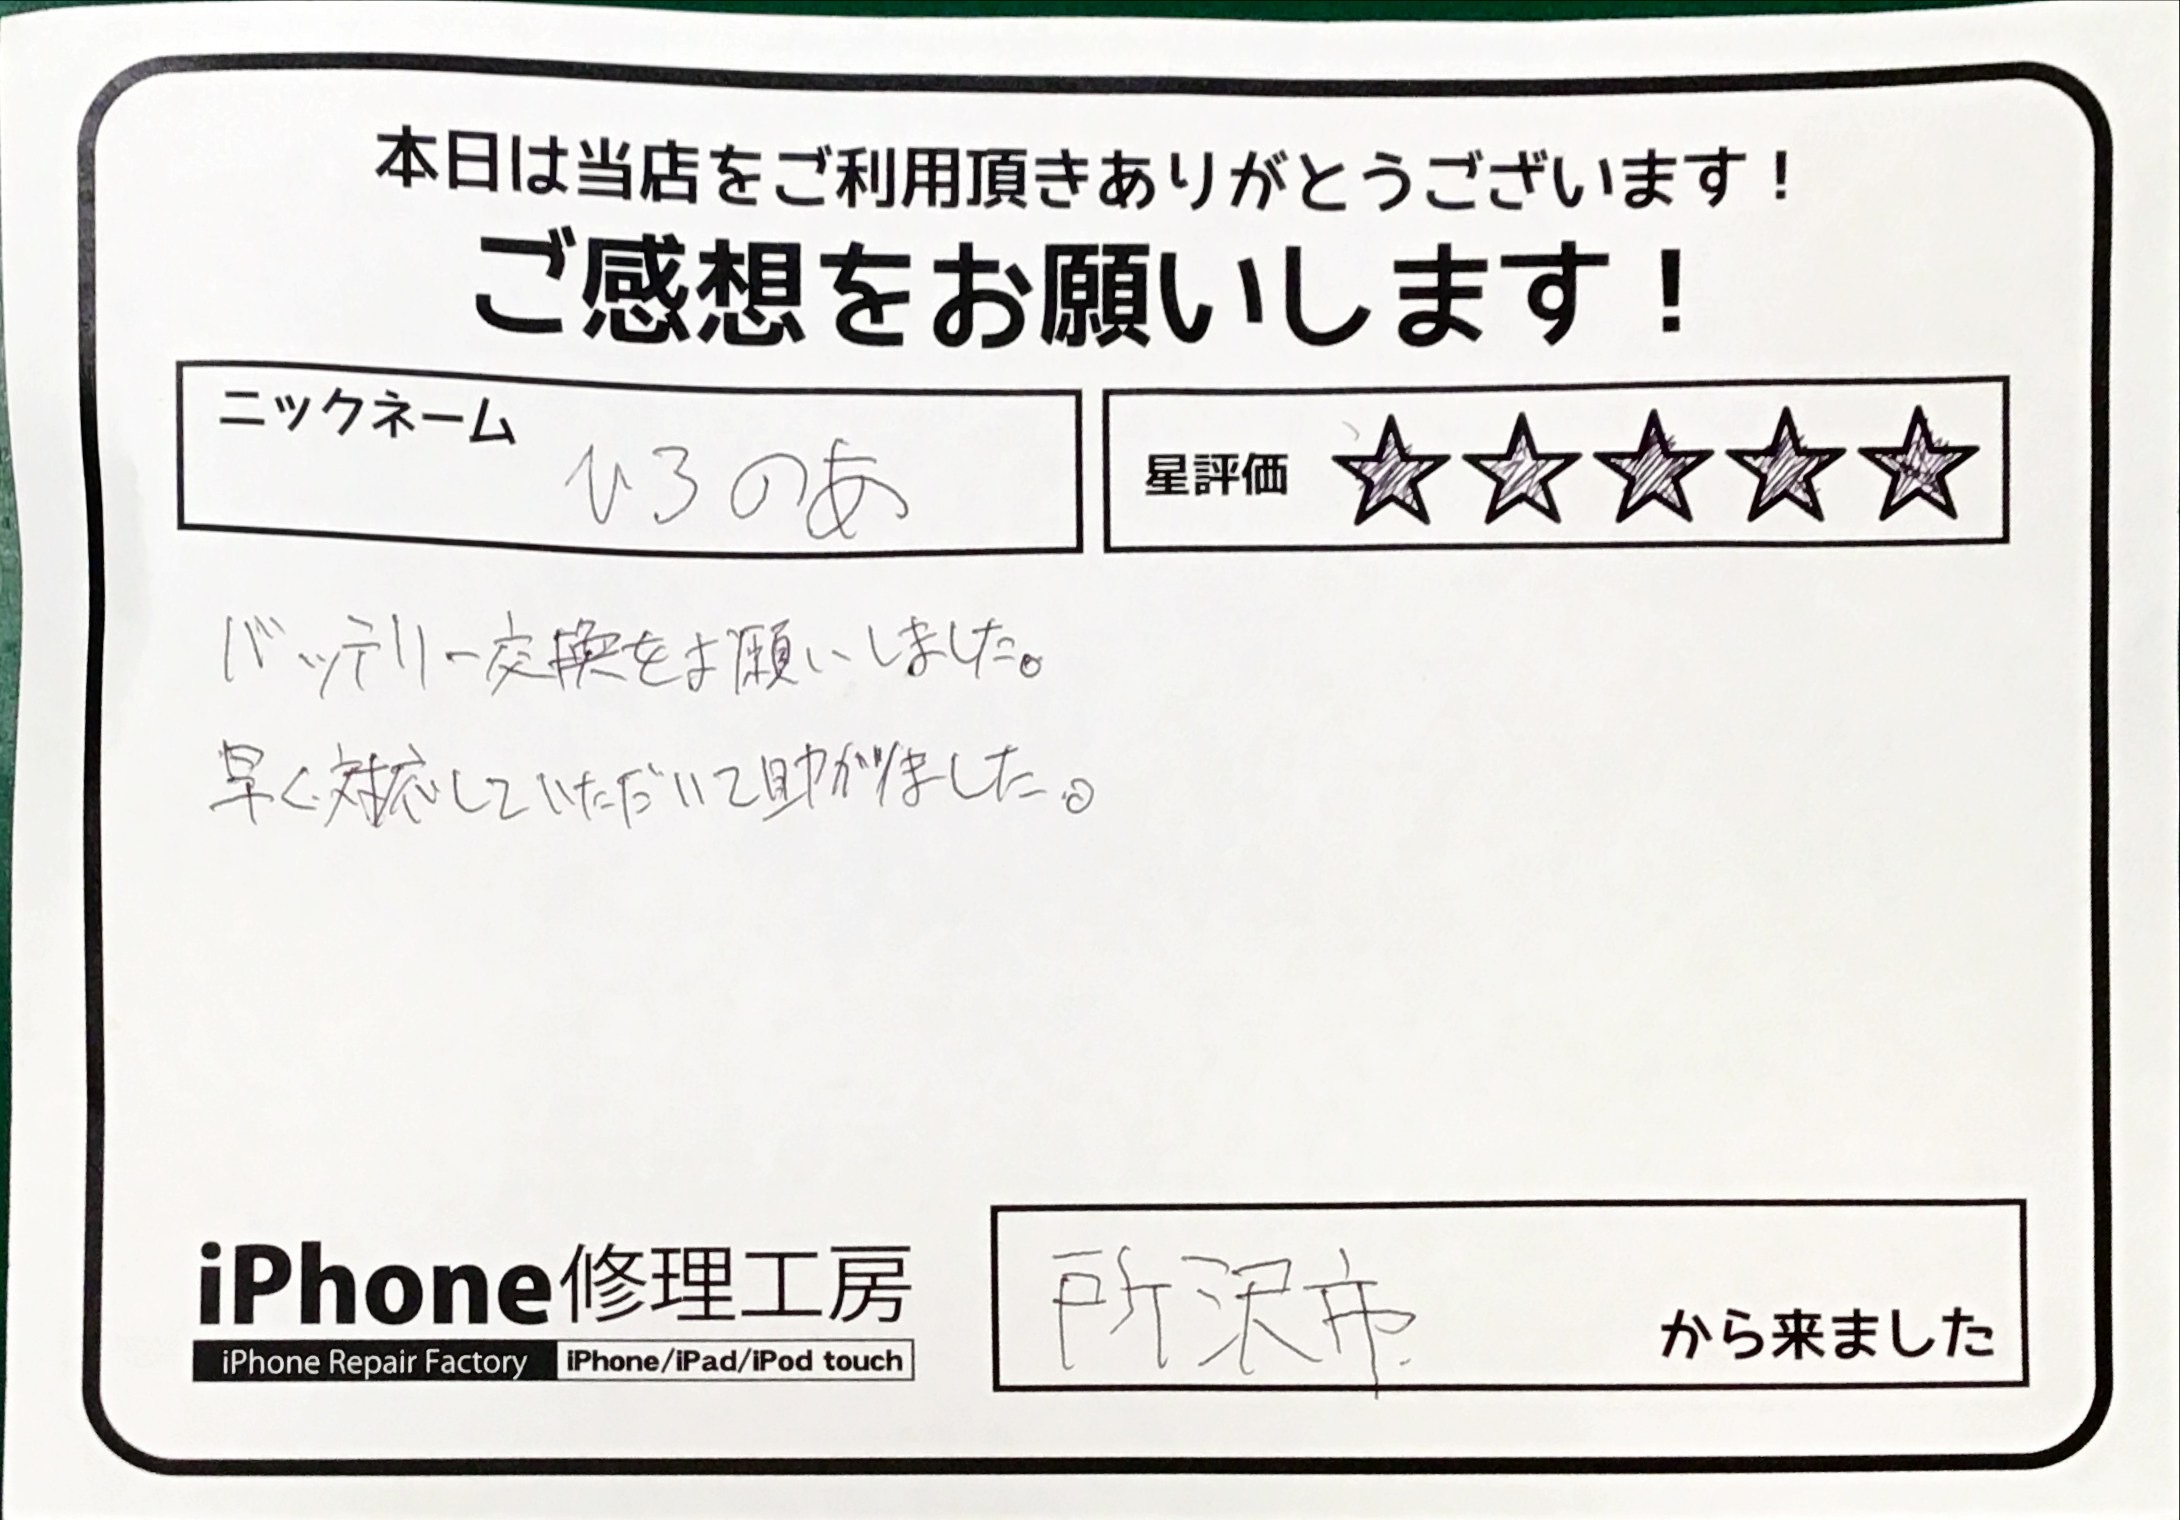 本日は当店をご利用頂きありがとうございます！
ご感想をお願いします！
ニックネーム ひろのあ
星評価 ★★★★★
バッテリー交換をお願いしました。
早く対応していただいて助かりました。
iPhone修理工房
iPhone Repair Factory iPhone/iPad/iPod touch
所沢市 から来ました